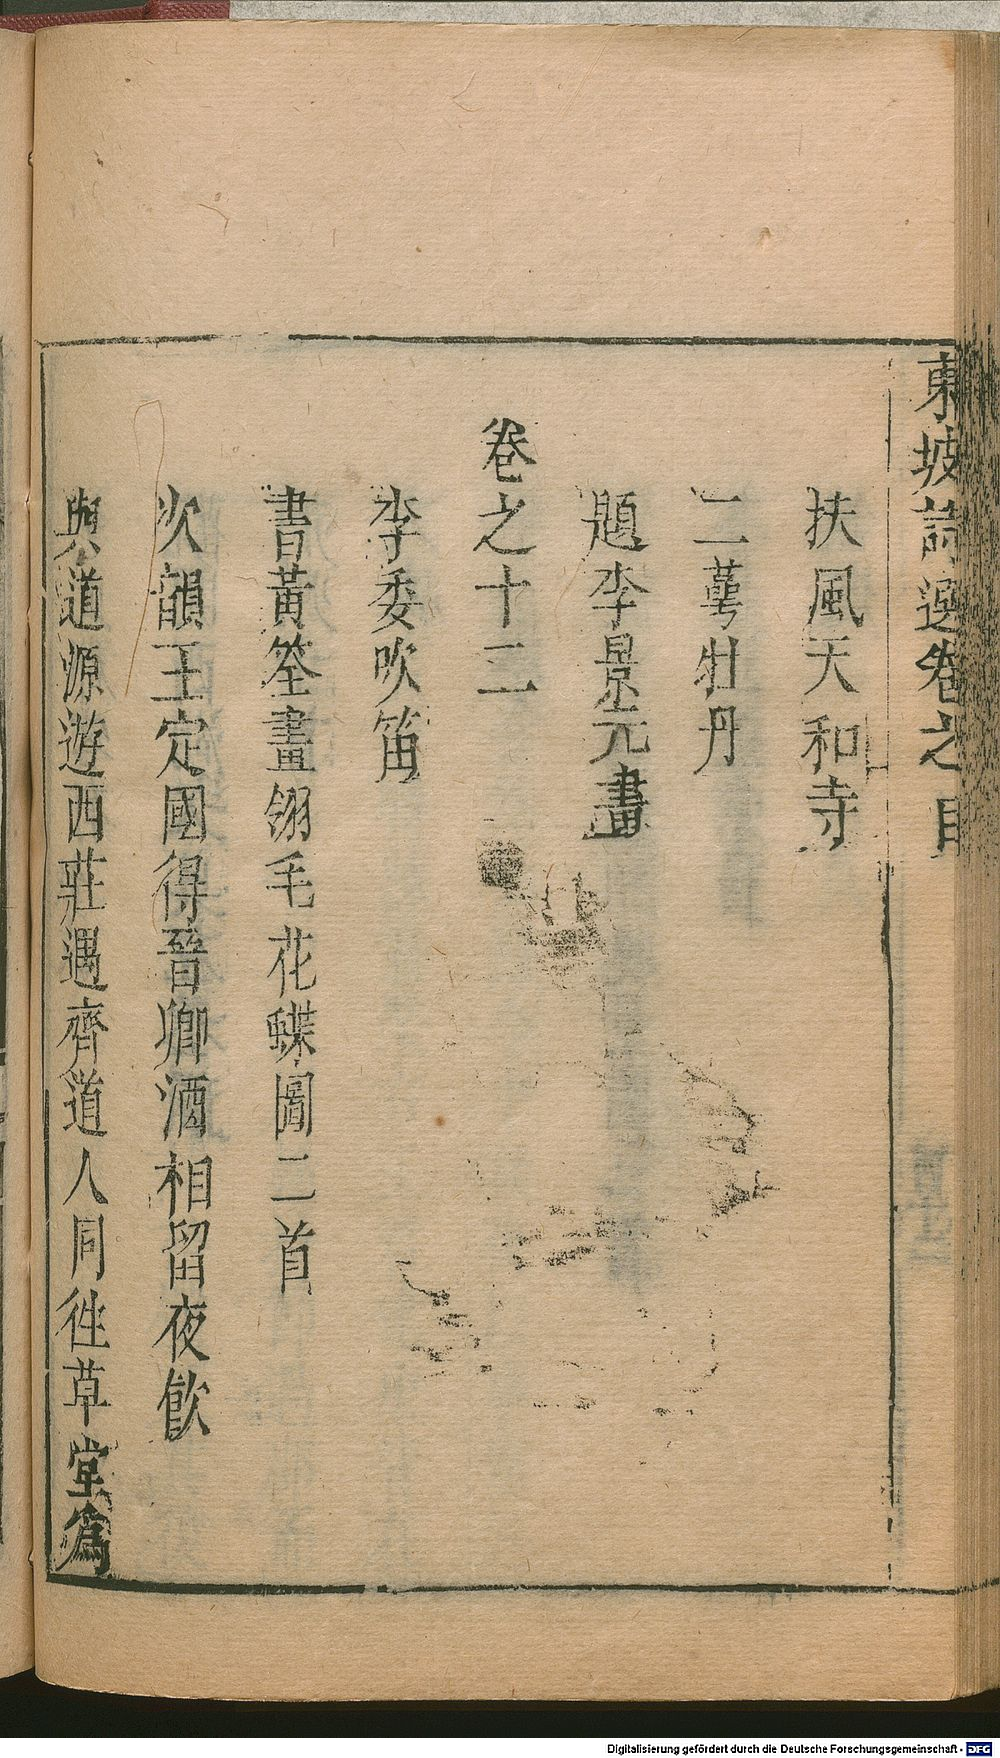 東坡詩選卷之目
扶風天和寺
二蕚牡丹
題李景元畫
卷之十二
李委吹笛
書黃筌畫翎毛花蝶圖二首
次韻王定國得晉卿酒相留夜飮
與道源遊西莊遇齊道人同徃草堂爲
Digitalisierung gefördert durch die Deutsche Forschungsgemeinschaft - DFG